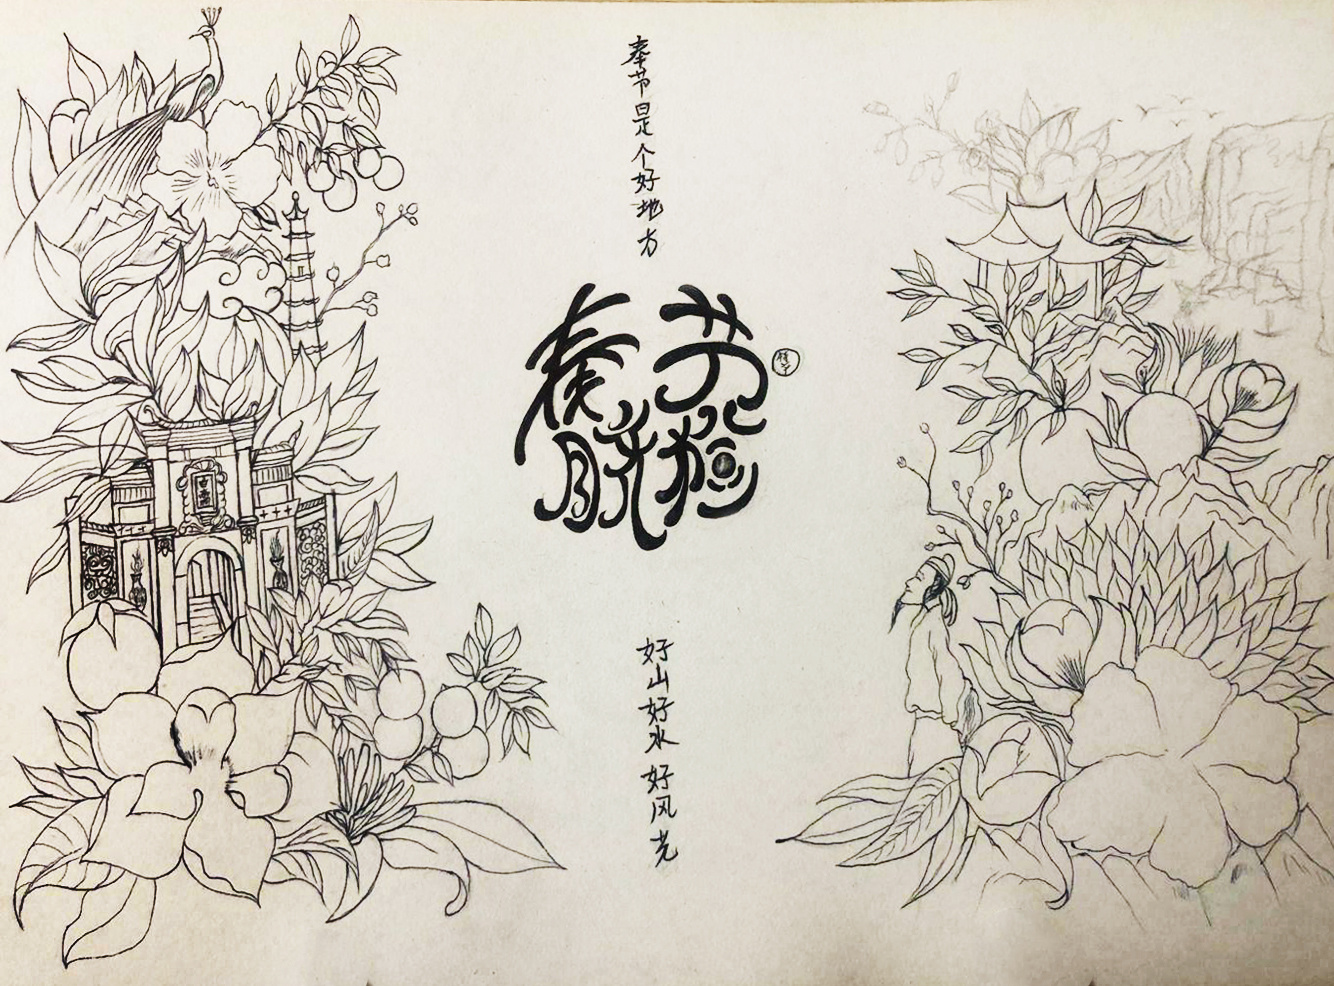 奉节是个好地方
奉节
脐橙
好山好水好风光